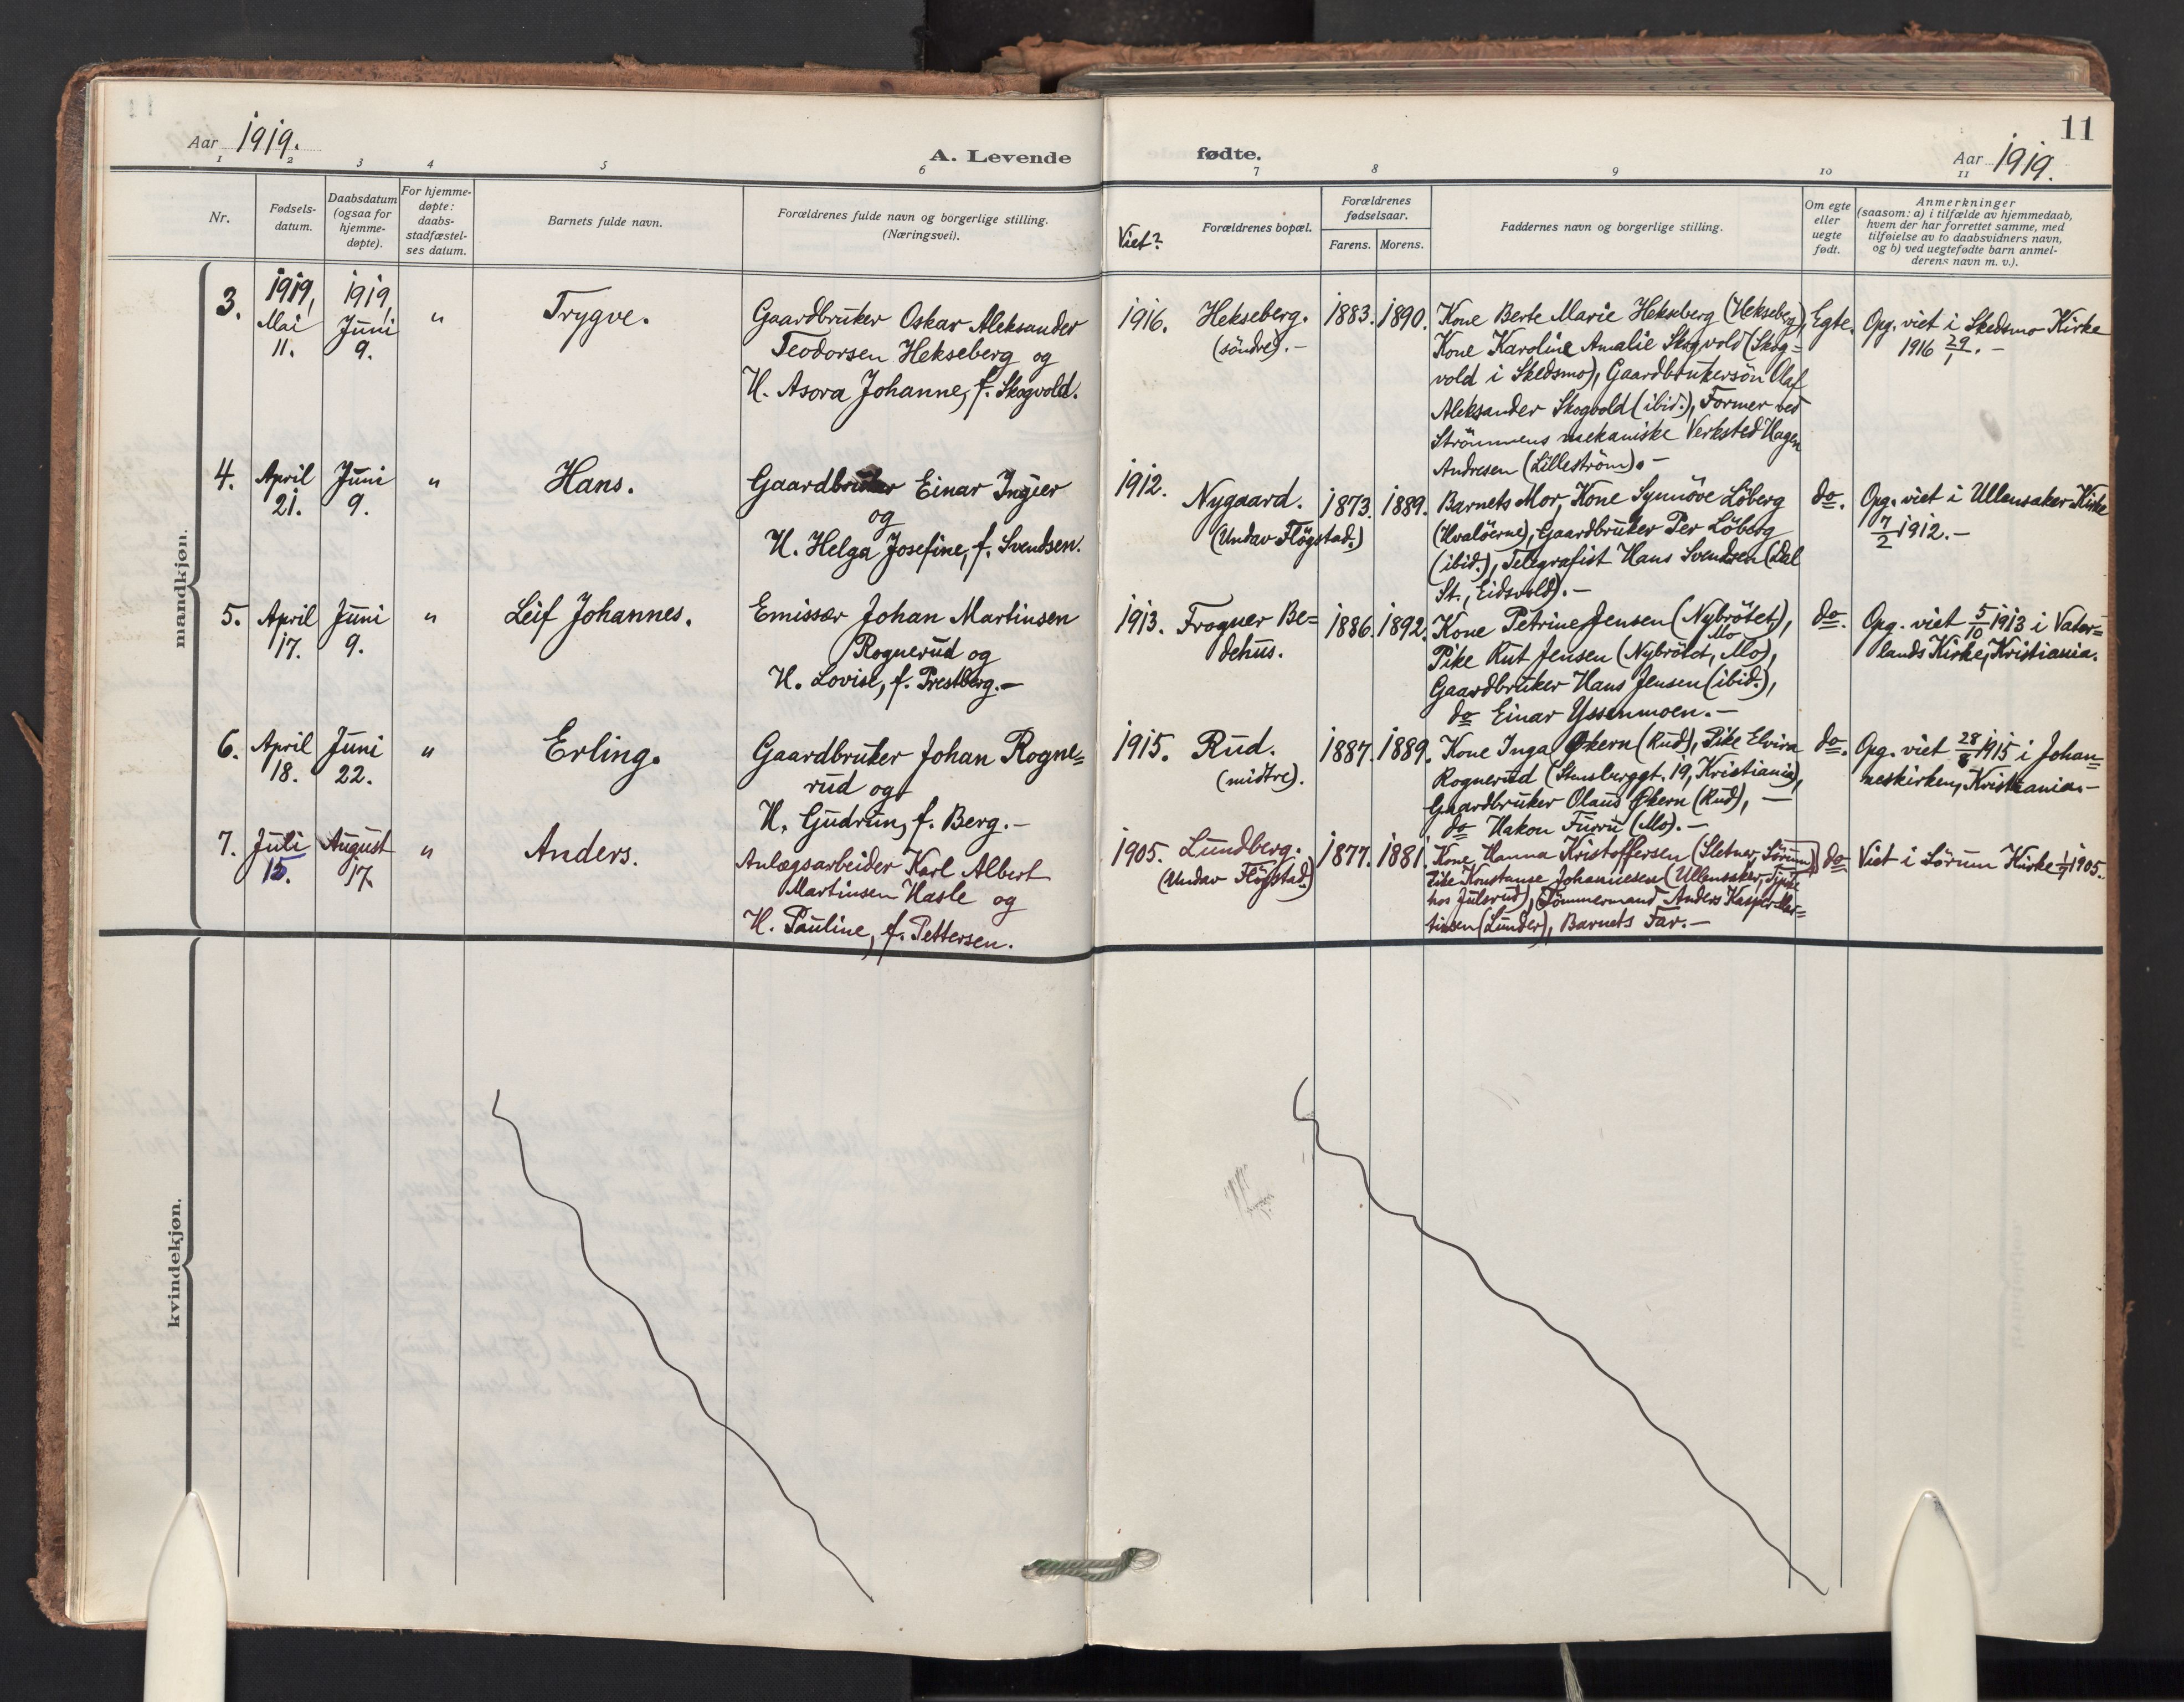 11
Aar 1919.
A. Levende fødte.
Aar 1919.
1 2 3 4 5 6 7 8 9 10 11
Nr.
Fødsels-
datum.
Daabsdatum
(ogsaa for
hjemme-
døpte).
For hjemme-
døpte:
daabs-
stadfæstel-
ses datum.
Barnets fulde navn.
Forældrenes fulde navn og borgerlige stilling.
(Næringsvei).
Viet?
Forældrenes bopæl.
Forældrenes
fødselsaar.
Farens. Morens.
Faddernes navn og borgerlige stilling.
Om egte
eller
uegte
født.
Anmerkninger
(saasom: a) i tilfælde av hjemmedaab,
hvem der har forrettet samme, med
tilføielse av to daabsvidners navn,
og b) ved uegtefødte barn anmel-
derens navn m. v.).
mandkjøn.
3.
1919,
Mai
11.
1919,
Juni
9.
"
Trygve.
Gaardbruker Oskar Aleksander
Teodorsen Hekseberg og
H. Asora Johanne, f. Skogvold.
1916.
Hekseberg.
(søndre).-
1883. 1890.
Kone Berte Marie Hekseberg (Hekseberg),
Kone Karoline Amalie Skogvold (Skog=
vold i Skedsmo), Gaardbrukersøn Olaf
Aleksander Skogvold (ibid.), Former ved
Strømmens mekaniske Verksted Hagen
Andresen (Lilleström).-
Egte.
Opg. viet i Skedsmo Kirke
1916 29/1.-
4.
April
21.
Juni
9.
"
Hans.
Gaardbruker Einar Ingier
og
H. Helga Josefine, f. Svendsen.
1912.
Nygaard.
(Undav Flögstad.)
1873. 1889.
Barnets Mor, Kone Synnöve Löberg
(Hvalöerne), Gaardbruker Per Löberg
(ibid.), Telegrafist Hans Svendsen (Dal
St., Eidsvold).-
do.
Opg. viet i Ullensaker Kirke
7/2 1912.-
5.
April
17.
Juni
9.
"
Leif Johannes.
Emissær Johan Martinsen
Rognerud og
H. Lovise, f. Prestberg.-
1913.
Frogner Be=
dehus.
1886. 1892.
Kone Petrine Jensen (Nybrötet),
Mo
Pike Rut Jensen (Nybrötet, Mo),
Gaardbruker Hans Jensen (ibid.),
do Einar Yssenmoen.-
do.
Opg. viet 5/10 1913 i Vater=
lands Kirke, Kristiania.
6.
April
18.
Juni
22.
"
Erling.
Gaardbruker Johan Rogne=
rud og
H. Gudrun, f. Berg.-
1915.
Rud.
(midtre).
1887. 1889.
Kone Inga Økern (Rud), Pike Elvira
Rognerud (Stensberggt. 19, Kristiania),
Gaardbruker Olaus Økern (Rud), -
do Hakon Furru (Mo).-
do.
Opg. viet 28/8 1915 i Johan=
neskirken, Kristiania.-
7.
Juli
15.
August
17.
"
Anders.
Anlægsarbeider Karl Albert
Martinsen Hasle og
H. Pauline, f. Pettersen.
1905.
Lundberg.
(Undav Flögstad.)
1877. 1881.
Kone Hanna Kristoffersen (Sletner, Sörum),
Pike Konstanse Johannesen (Ullensaker,
hos Julsrud), Tömmermand Anders Kasper Mar=
tinsen (Lunder), Barnets Far.-
do
Viet i Sörum Kirke 1905.
kvindekjøn.